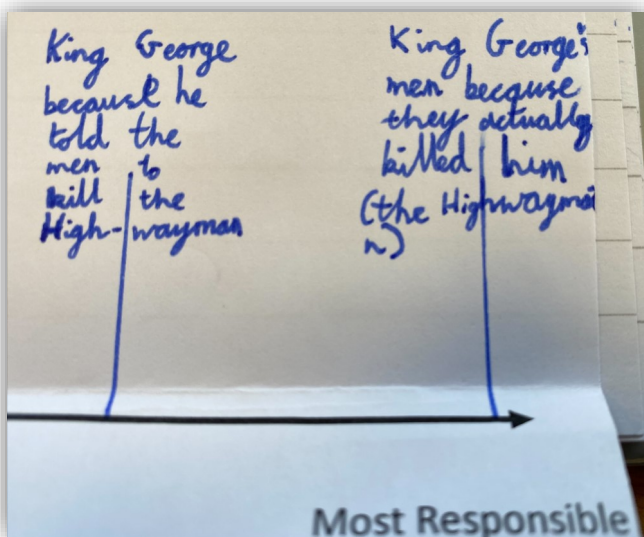 King George
because he
told the
men to
kill the
High-wayman
King George's
men because
they actually
killed him
(the Highwayma
n)
Most Responsible